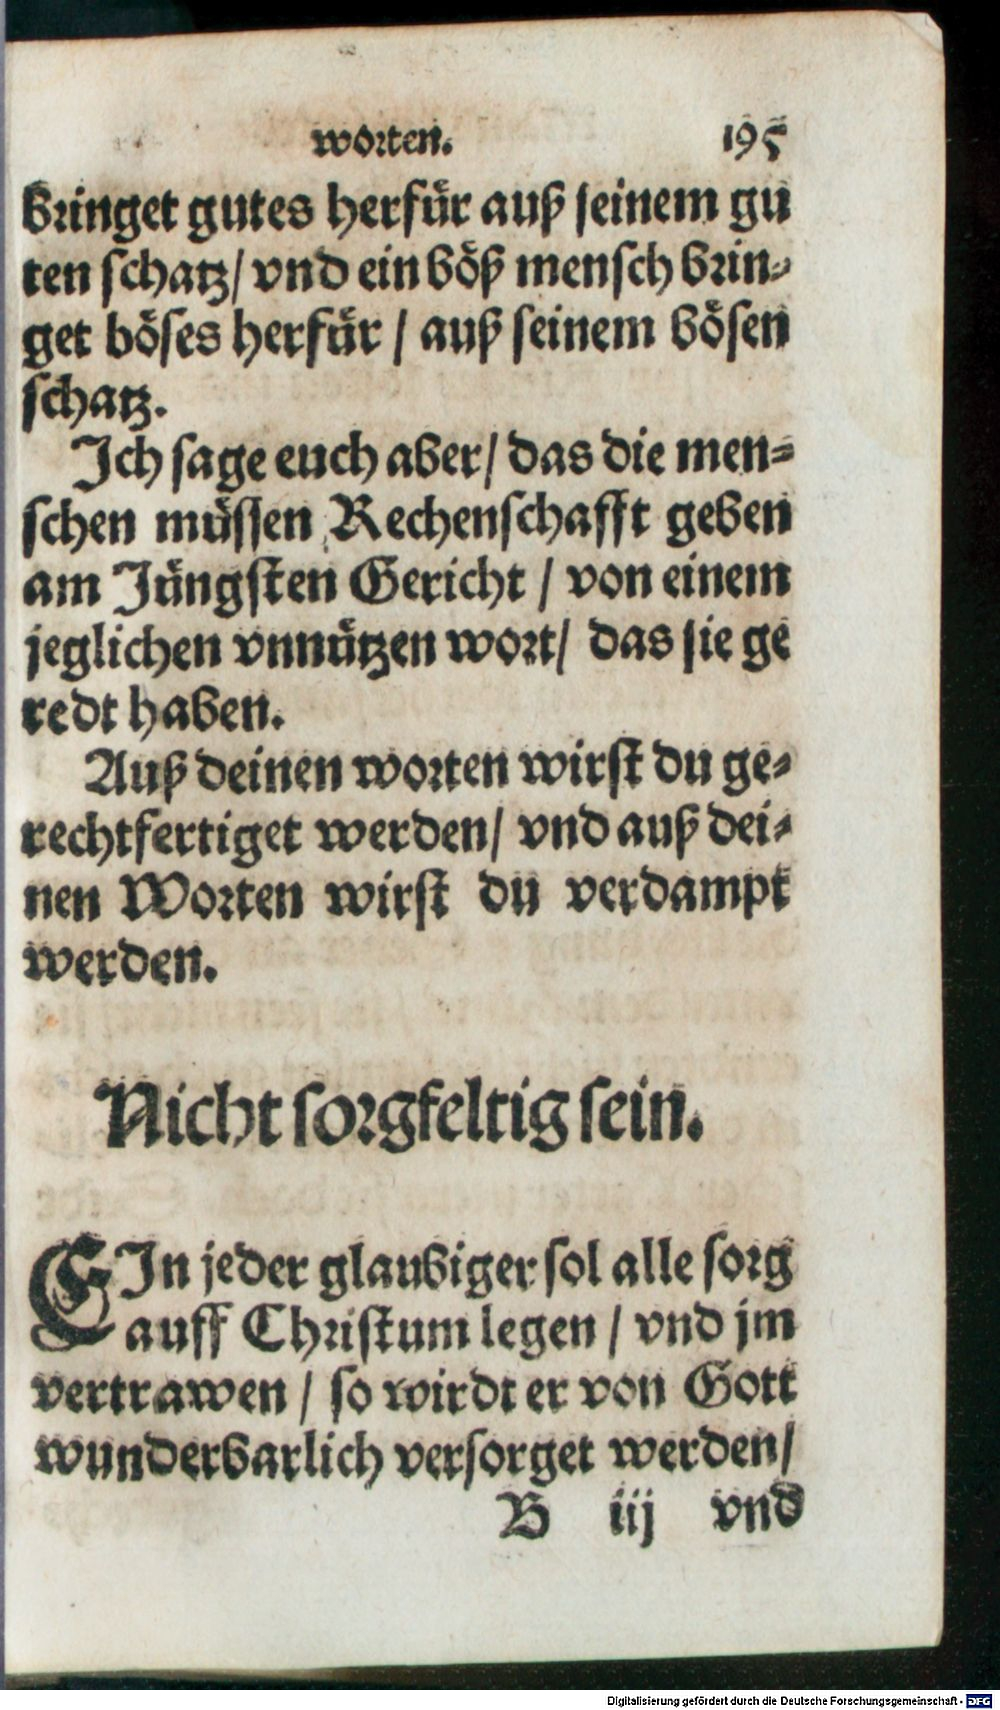 worten. 195
bringet gutes herfür auß seinem gu
ten schatz/ vnd ein böß mensch brin⸗
get böses herfür / auß seinem bösen
schatz.
Ich sage euch aber/ das die men⸗
schen müssen Rechenschafft geben
am Jüngsten Gericht / von einem
jeglichen vnnützen wort/ das sie ge
redt haben.
Auß deinen worten wirst du ge⸗
rechtfertiget werden/ vnd auß dei⸗
nen Worten wirst du verdampt
werden.
Nicht sorgfeltig sein.
EIn jeder glaubiger sol alle sorg
auff Christum legen / vnd jm
vertrawen / so wirdt er von Gott
wunderbarlich versorget werden/
B iij vnd
Digitalisierung gefördert durch die Deutsche Forschungsgemeinschaft - DFG